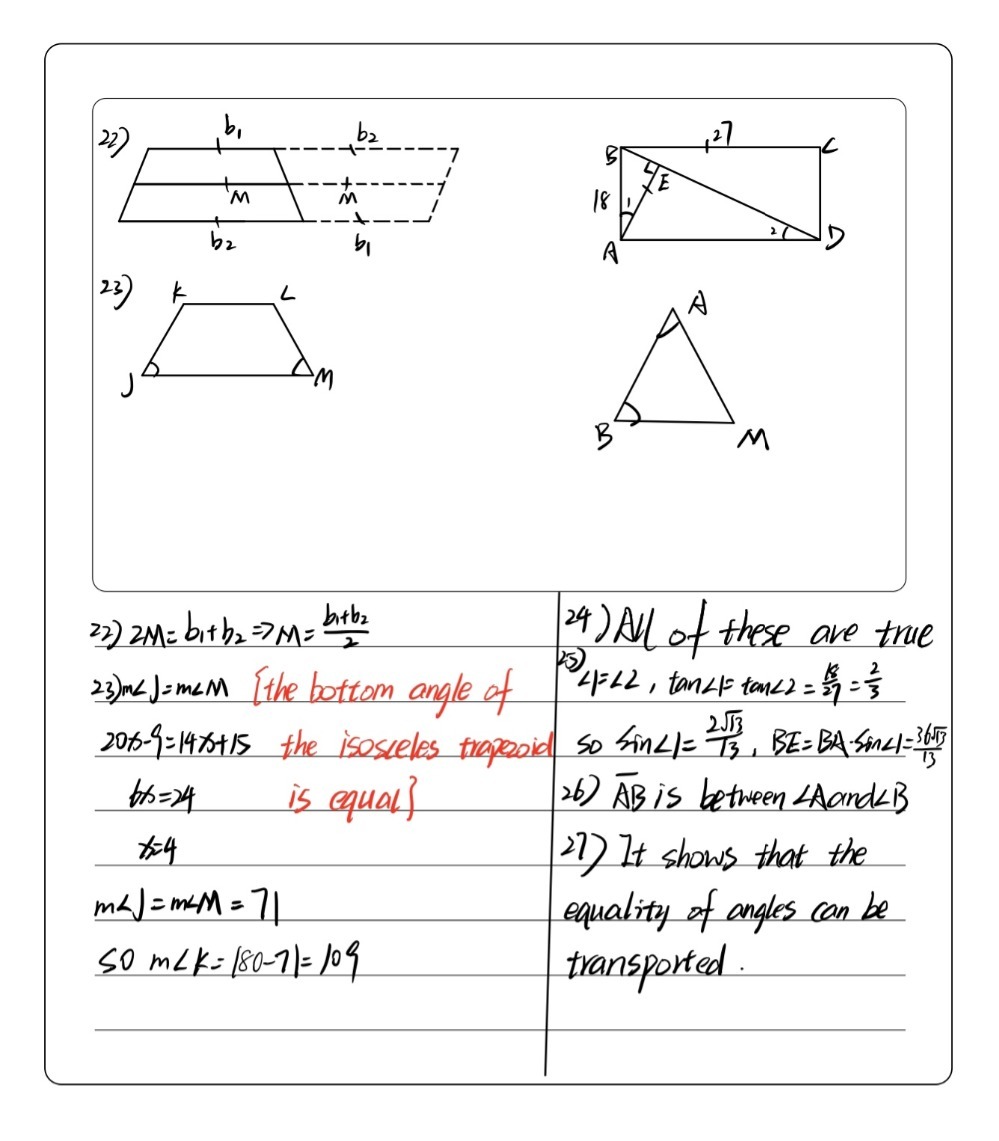 22)
b₁
b₂
M
M
b₂
b₁
27
B
C
E
18
1
2
A
D
23)
K
L
J
M
A
B
M
22) 2M = b₁+b₂ ⇒ M = (b₁+b₂)/2
23) m∠J = m∠M {the bottom angle of
20x-9=14x+15 the isosceles trapezoid
6x=24 is equal}
x=4
m∠J = m∠M = 71
so m∠K = 180-71=109
24) All of these are true
25) ∠1=∠2, tan∠1= tan∠2 = 18/27 = 2/3
so sin∠1= 2√13/13, BE=BA·Sin∠1= 36√13/13
26) A̅B̅ is between ∠A and ∠B
27) It shows that the
equality of angles can be
transported.